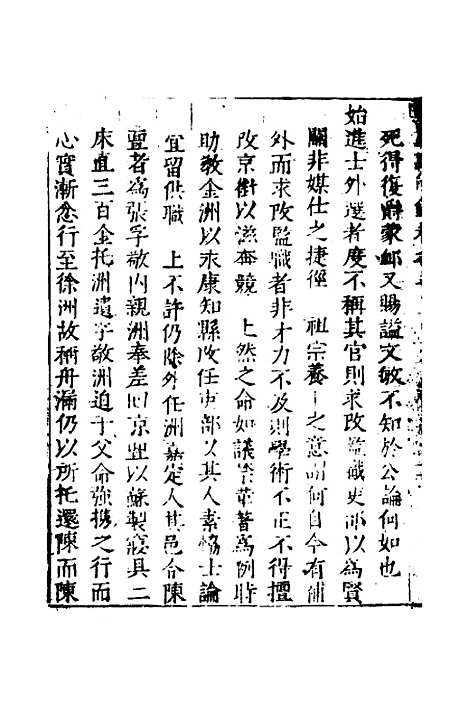 死得復爵蒙卹又賜謚文敏不知於公論何如也
始進士外選者度不稱其官則求改監職吏部以為賢
關非媒仕之捷徑　祖宗養士之意謂何自今有補
外而求改監職者非才力不及則學術不正不得擅
改京銜以滋奔競　上然之命如議寧華著為例時
助教金洲以永康知縣改任吏部以其人素愜士論
宜留供職　上不許仍除外任洲嘉定人其邑令陳
豐者為張孚敬內親洲奉差回京豐以蘇製寢具二
床直三百金托洲遺孚敬洲迫于父命強携之行而
心實漸忿行至徐洲故稱舟漏仍以所托還陳而陳